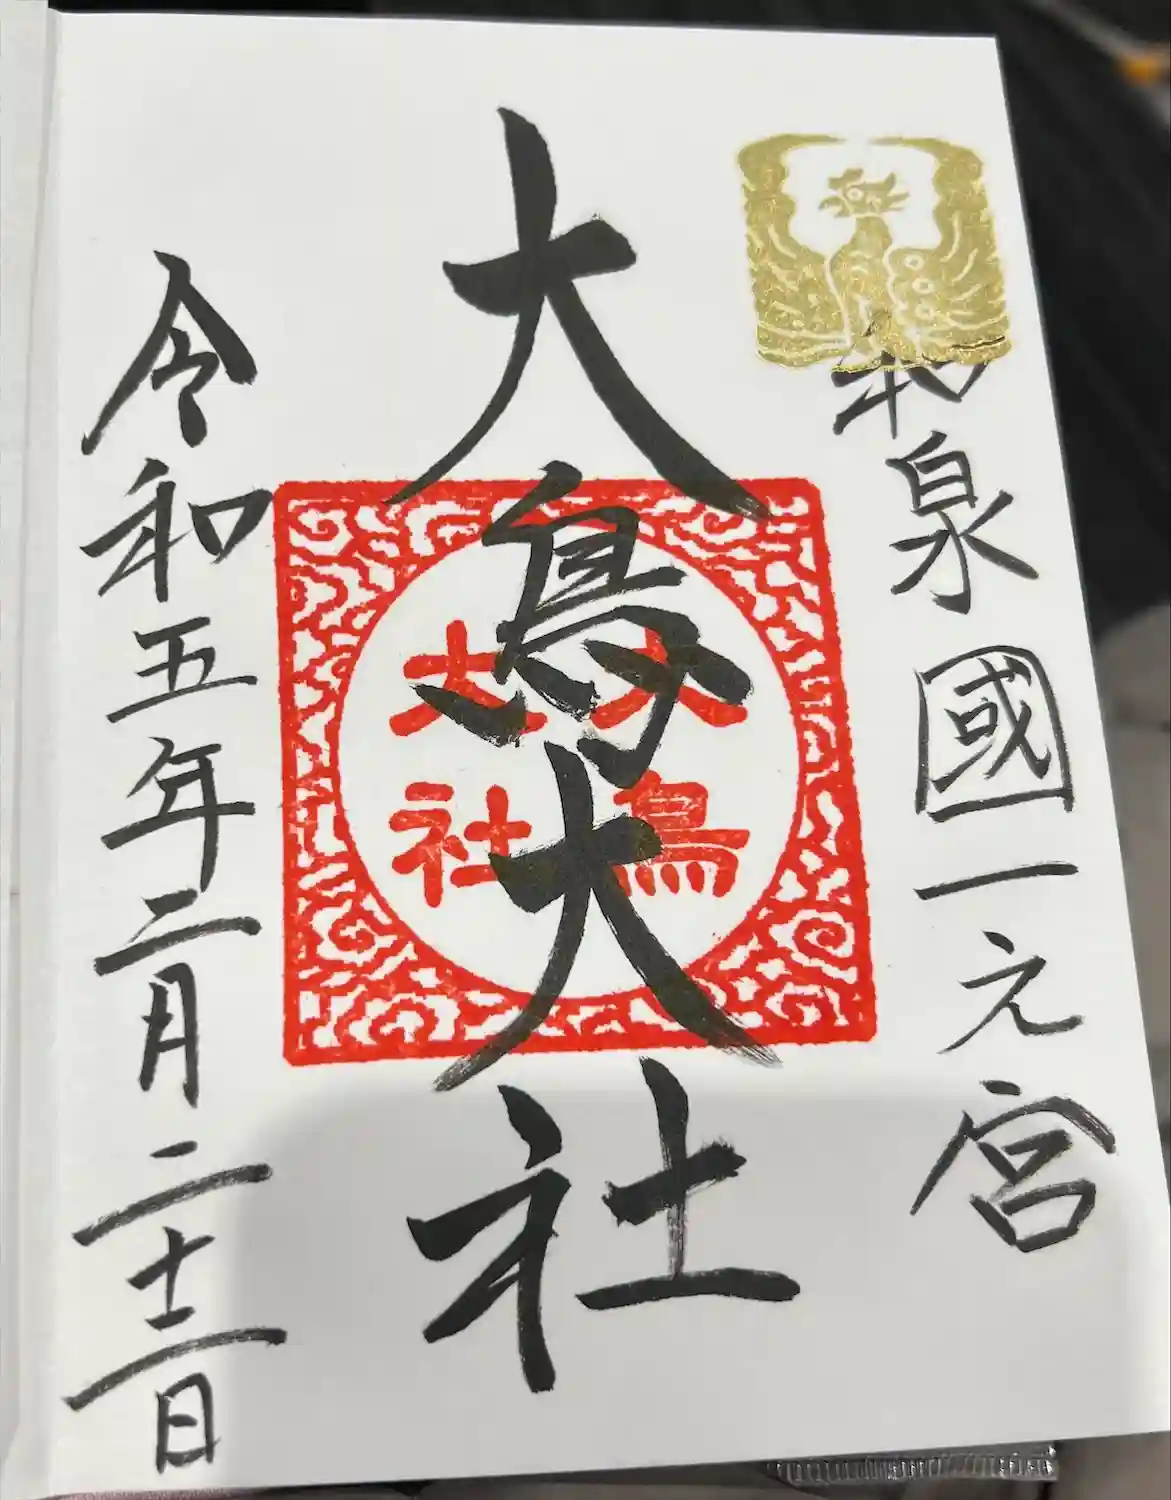 和泉國一之宮
大鳥大社
大鳥
大社
令和五年二月二十二日